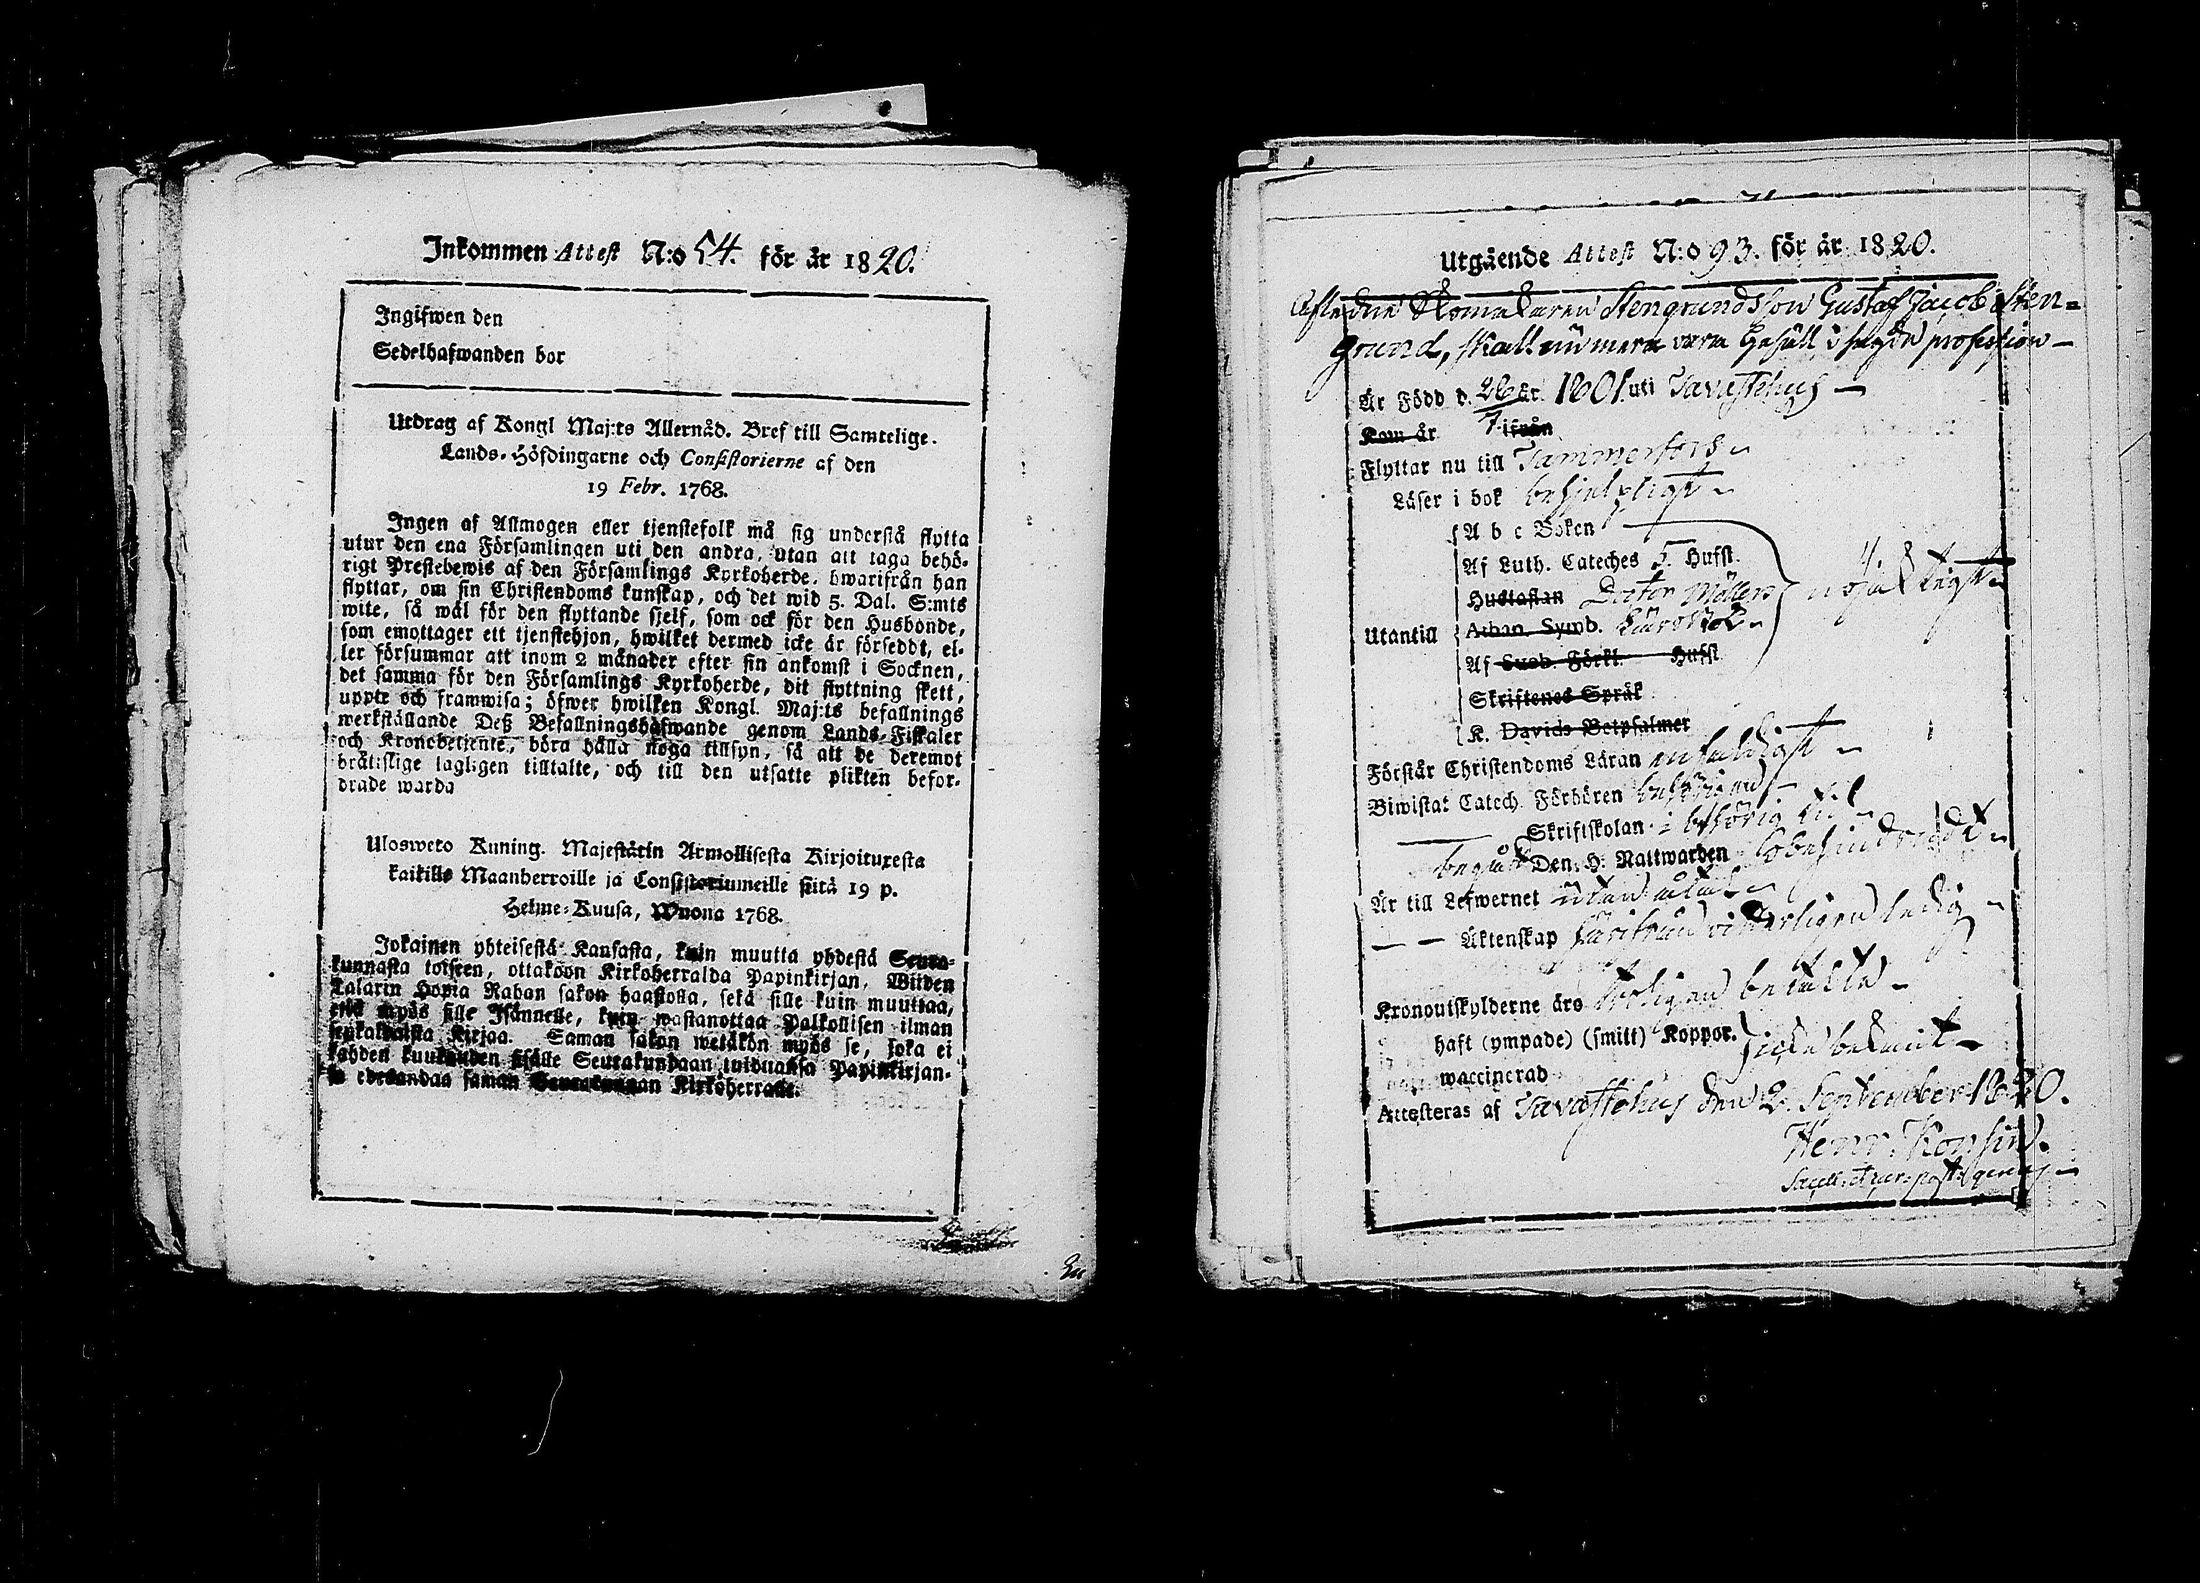 Inkommen Attest N:o 54. för år 1820.
Ingifwen den
Sedelhafwanden bor
Utdrag af Kongl Maj:ts Allernåd. Bref till Samtelige.
Lands-Höfdingarne och Consistorierne af den
19 Febr. 1768.
Ingen af Allmogen eller tjenstefolk må sig understå flytta
utur den ena Församlingen uti den andra, utan att taga behö-
rigt Prestebewis af den Församlings Kyrkoherde, hwarifrån han
flyttar, om sin Christendoms kunskap, och det wid 5. Dal. S:mts
wite, så wäl för den flyttande sjelf, som ock för den Husbonde,
som emottager ett tjenstehjon, hwilket dermed icke är förseddt, el-
ler försummar att inom 2 månader efter sin ankomst i Socknen,
det samma för den Församlings Kyrkoherde, dit flyttning skett,
uppte och framwisa; öfwer hwilken Kongl. Maj:ts befallnings
werkställande Deß Befallningshafwande genom Lands-Fiskaler
och Kronobetjente, böra hålla noga tillsyn, så att de deremot
brätislige lagligen tilltalte, och till den utsatte plikten befor-
drade warda
Ulosweto Kuning. Majestätin Armollisesta Kirjoituxesta
kaikille Maanherroille ja Consistoriumeille siitä 19 p.
Helme-Kuusa, Wuona 1768.
Jokainen yhteisestä Kansasta, kuin muutta yhdestä Seura-
kunnasta toiseen, ottakoon Kirkoherralda Papinkirjan, Wiiden
Talarin Hopia Rahan sakon haastolla, sekä sille kuin muuttaa,
että myös sille Isännelle, kuin wastanottaa Palkollisen ilman
senkaltaista Kirjaa. Saman sakon wetäkön myös se, joka ei
kahden kuukauden sisälle Seurakundaan tulduansa Papinkirjan-
sa edesandaa saman Seurakunnan Kirkoherralle.
Utgående Attest N:o 93. för år 1820.
Afledne Skomakaren Stengrunds son Gustaf Jacob Sten-
grund, skall nu mera vara Gesäll i sagde profession –
Är Född d. 26/7 år 1801 uti Tavastehus –
Kom år ifrån
Flyttar nu till Tammerfors
Läser i bok behjelpligt
A b c Boken
Af Luth. Cateches 5. Hufst.
Hustaflan Doctor Möllers nöjaktigt
Utantill Athan. Symb. Lärobok
Af Sueb. Förkl. Hufst
Skriftenes Språk
K. Davids Botpsalmer
Förstår Christendoms Läran enfaldigt
Biwistat Catech. Förhören behörigen
Skriftskolan i behörig tid
begått Den H. Nattwarden obehindradt
Är till Lefwernet utan åtal
Äktenskap härifrån vitterligen ledig
Kronoutskylderne äro troligen betalte
haft (ympade) (smitt) Koppor. icke bekant
waccinerad
Attesteras af Tavastehus den 2. September 1820.
Henr. Konsin.